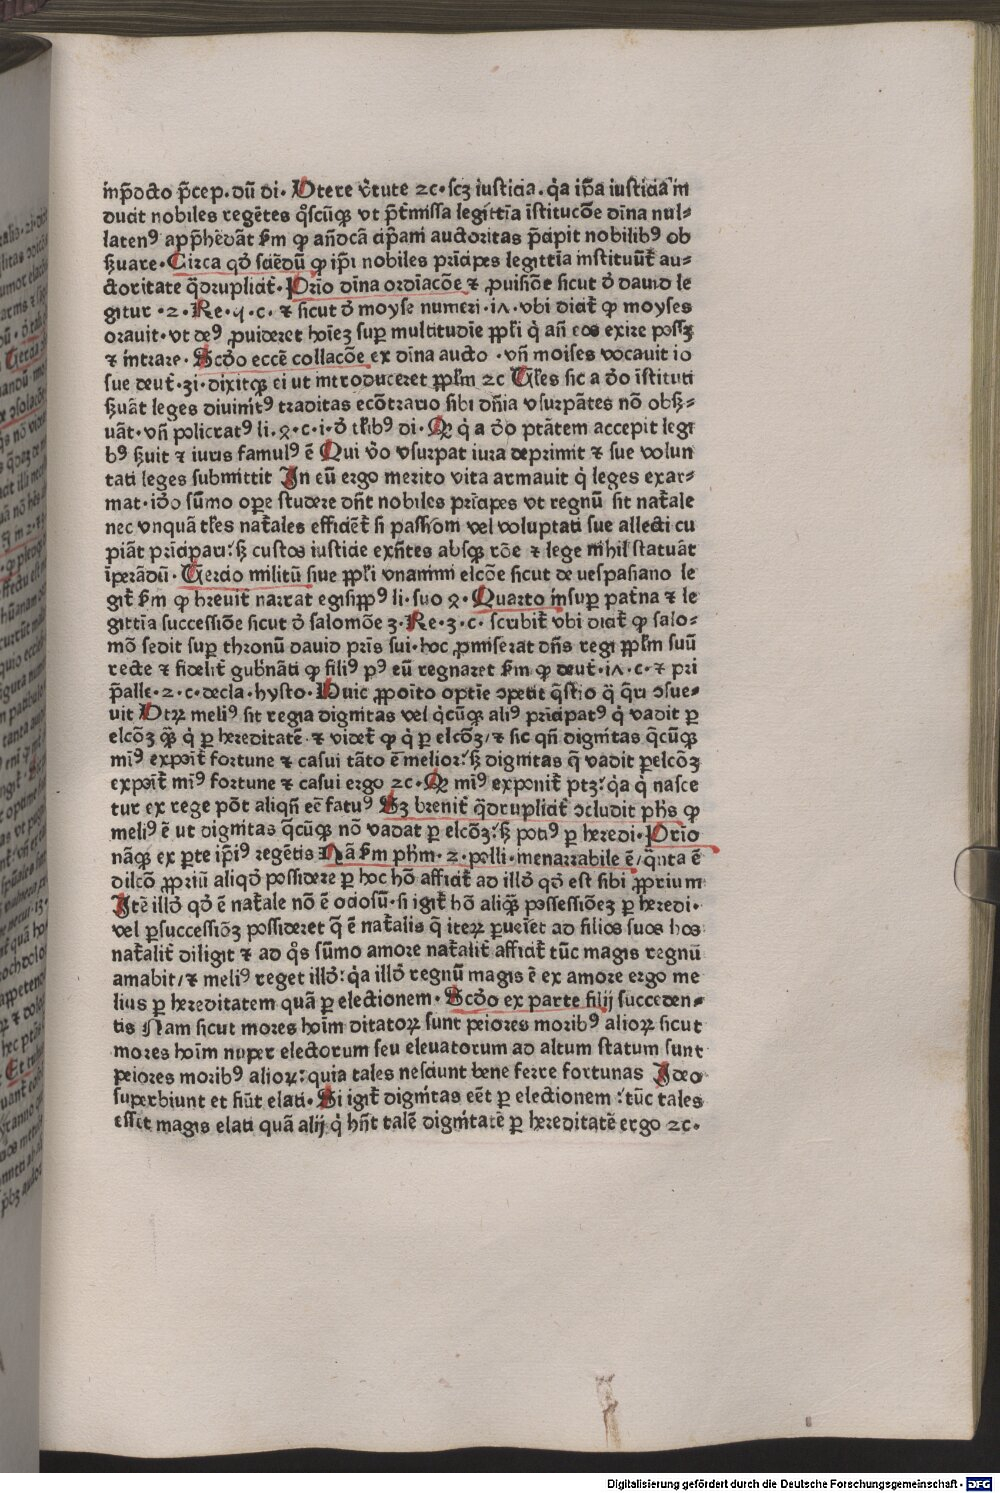 inp̄dcto p̄cep. dū di. Vtere v̓tute ⁊c. scꝫ iusticia. q̇a ip̄a iusticia in
ducit nobiles regētes q̊scūqꝫ vt p̄t̄missa legittīa īstitucōe dīna nul⸗
laten⁹ app̄hēdāt s̄m qɔ an̄dcā ap̄am auctoritas p̄cipit nobilib⁹ ob
ẜuare. Circa qd̓ sciēdū qɔ ip̄i nobiles prīcipes legittīa instituūt̄ au⸗
ctoritate q̄drupliciт̄. Prīo dīna ordīacōe ⁊ ꝓuisiōe sicut d̓ dauid le
gitur .2. Re. ꝗ. c. ⁊ sicut d̓ moyse numeri .iʌ. vbi dicit̄ qɔ moyses
orauit. vt de⁹ ꝓuideret hoīeꝫ suꝑ multitudīe ꝓpl̄i q̇ an̄ eos exire possꝫ
⁊ intrare. Scd̓o eccē collacōe ex dīna aucto. vn̄ moises vocauit io
sue deut̄. ꝫi. dixitqꝫ ei ut introduceret ꝓpl̄m ⁊c Tl̄es sic a dō īstituti
ẜuāt leges diuinit⁹ traditas ecōtrario sibi dn̄ia vsurpātes nō obẜ⸗
uāt. vn̄ policrat⁹ li. ꝯ. c. i. d̓ tl̄ib⁹ di. Qɔ q̇ a dō ptātem accepit legi
b⁹ ẜuit ⁊ iuris famul⁹ ē Qui vo̓ vsurpat iura deprimit ⁊ sue volun
tati leges submittit In eū ergo merito vita armauit q̇ leges exar⸗
mat. id̓o sūmo oꝑe studere dn̄t nobiles prīcipes vt regnū sit nat̄ale
nec vnquā tl̄es nat̄ales efficiēt̄ si passiōni vel voluptati sue allecti cu
piāt prīcipari: ẜꝫ custos iusticie exn̄tes absqꝫ rōe ⁊ lege nihil statuāt
īperādū. Tercio militū siue ꝓpl̄i vnanimi elcōe sicut de uespasiano le
git̄ s̄m qɔ breuit̄ narrat egisipꝑ⁹ li. suo ꝯ. Quarto insuꝑ pat̄na ⁊ le
gittīa successiōe sicut d̓ salomōe ꝫ. Re. ꝫ. c. scribit̄ vbi dicit̄ qɔ salo⸗
mō sedit suꝑ thronū dauid pr̄is sui. hoc ꝓmiserat dn̄s regi ꝓpl̄m suū
recte ⁊ fidelit̄ gub̄nāti qɔ fili⁹ p⁹ eū regnaret s̄m qɔ deut̄. iʌ. c. ⁊ pri
p̄alle. 2. c. decla. hysto. Huic ꝓpoīto optīe ɔpetit q̄stio q̄ q̄ri ɔsue⸗
uit Vtꝝ meli⁹ sit regia dignitas vel q̇cūqꝫ ali⁹ prīcipat⁹ q̇ vadit ꝑ
elcōꝫ qꝫ̄ q̇ ꝑ hereditatē. ⁊ videt̄ qɔ q̇ ꝑ elcōꝫ/ ⁊ sic qn̄ dignitas q̄cūqꝫ
mi⁹ expoīt̄ fortune ⁊ casui tāto ē melior: ẜꝫ dignitas q̄ vadit ꝑ elcōꝫ
expoīt̄ mi⁹ fortune ⁊ casui ergo ⁊c. Qɔ mi⁹ exponit̄ ptꝫ: q̇a q̇ nasce
tur ex rege pōt aliqn̄ eē fatu⁹ Sꝫ breuit̄ q̄drupliciт̄ ɔcludit ph̄s qɔ
meli⁹ ē ut dignitas q̄cūqꝫ nō vadat ꝑ elcōꝫ: ẜꝫ poti⁹ ꝑ heredi. Prīo
nāqꝫ ex ꝑte ip̄i⁹ regētis Nā s̄m ph̄m. 2. polli. inenarrabile ē/ q̄nta ē
dilcō ꝓpriū aliqd̓ possidere ꝑ hoc hō afficit̄ ad illd̓ qd̓ est sibi ꝓprium
Itē illd̓ qd̓ ē nat̄ale nō ē ociosū. si igit̄ hō aliqꝫ̄ possessiōeꝫ ꝑ heredi.
vel ꝑ successiōꝫ possideret q̄ ē nat̄alis q̄ iteꝝ ꝑueīet ad filios suos hos
nat̄alit̄ diligit ⁊ ad q̊s sūmo amore nat̄alit̄ afficit̄ tūc magis regnū
amabit/ ⁊ meli⁹ reget illd̓: q̇a illd̓ regnū magis ē ex amore ergo me
lius ꝑ hereditatem quā ꝑ electionem. Scd̓o ex parte filij succeden⸗
tis Nam sicut mores hoīm ditatoꝝ sunt peiores morib⁹ alioꝝ sicut
mores hoīm nuper electorum seu eleuatorum ad altum statum sunt
peiores morib⁹ alioꝝ: quia tales nesciunt bene ferre fortunas Ideo
superbiunt et fiūt elati. Si igit̄ dignitas eēt ꝑ electionem : tūc tales
essēt magis elati quā alij q̇ hn̄t talē dignitatē ꝑ hereditatē ergo ⁊c.
Digitalisierung gefördert durch die Deutsche Forschungsgemeinschaft - DFG